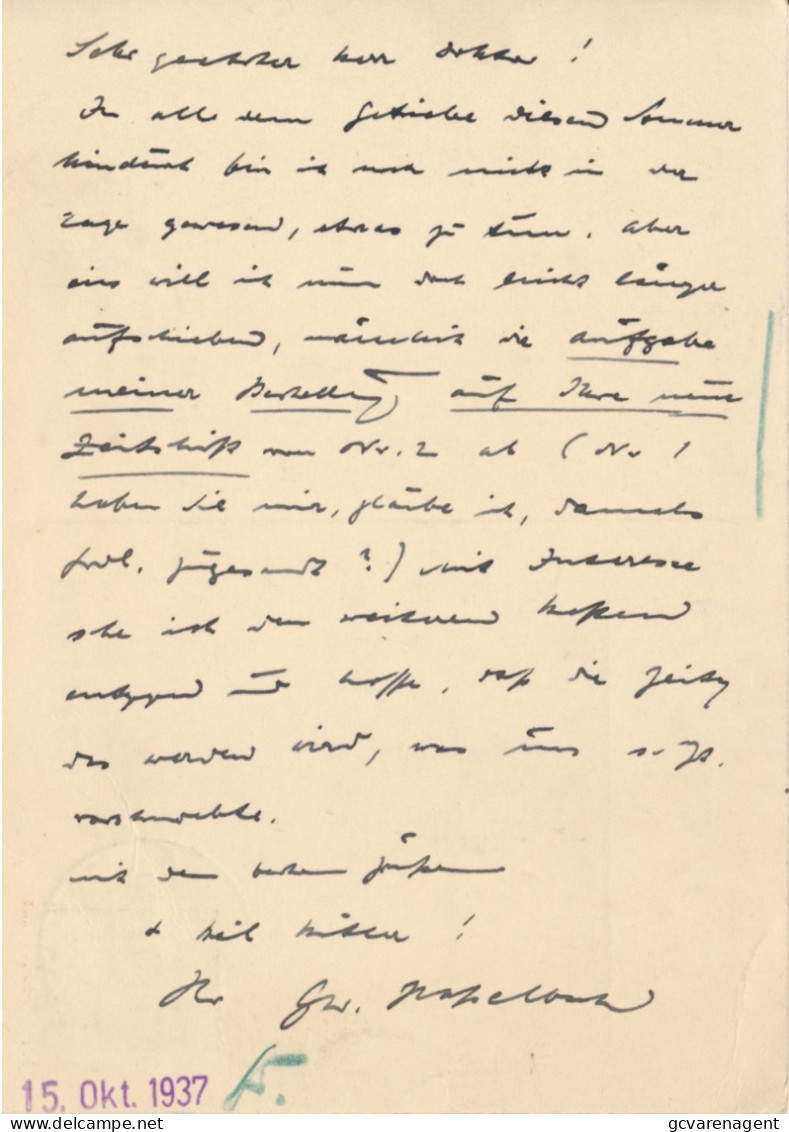 Sehr geehrter Herr Doktor!
In all dem Getriebe diesen Sommer
hindurch bin ich noch nicht in der
Lage gewesen, etwas zu tun. Aber
eins will ich nun doch nicht länger
aufschieben, nämlich die Aufgabe
meiner Bestellung auf Ihre neue
Zeitschrift von Nr. 2 ab (Nr 1
haben Sie mir, glaube ich, damals
frdl. zugesandt?) Mit Interesse
sehe ich den weiteren Heften
entgegen und hoffe, daß die Zeitg
das werden wird, was uns s. Zt.
vorschwebte.
Mit den besten Grüßen
+ Heil Hitler!
Ihr
15. Okt. 1937
gcvarenagent